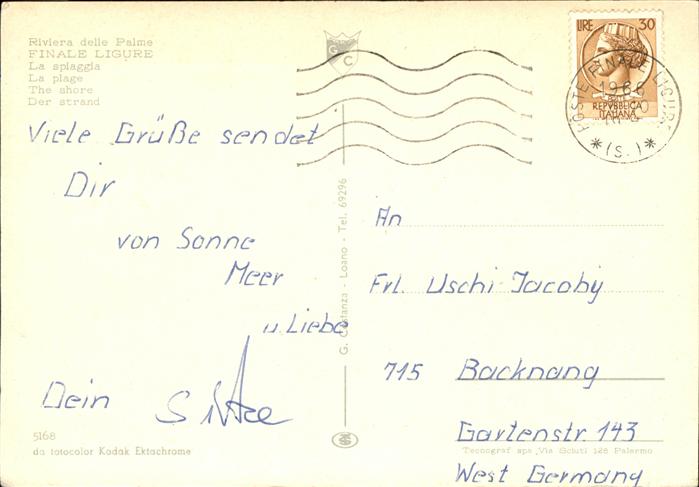 Riviera delle Palme
FINALE LIGURE
La spiaggia
La plage
The shore
Der strand
G C
LIRE 30
POSTE REPVBBLICA
ITALIANA
POSTE FINALE LIGURE
1968
*(S.)*
Viele Grüße sendet
Dir
von Sonne
Meer
u. Liebe
Dein
G. Costanza - Loano - Tel. 69296
An
Frl. Uschi Jacoby
715 Backnang
Gartenstr. 143
West Germany
5168
da fotocolor Kodak Ektachrome
Tecnograf spa Via Sciuti 128 Palermo